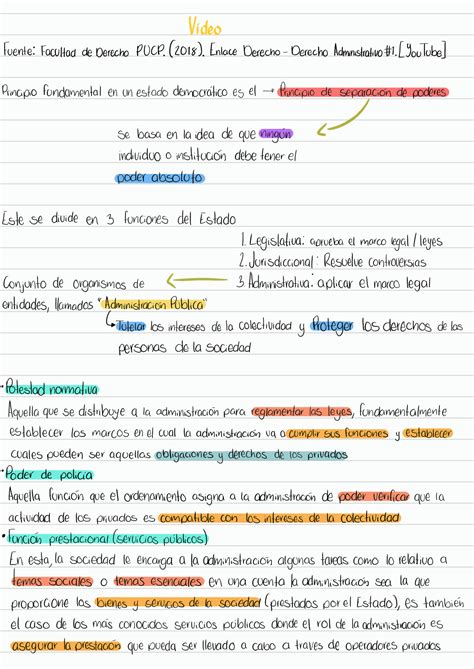 Video
Fuente: Facultad de Derecho PUCP. (2018). Enlace Derecho - Derecho Administrativo #1. [YouTube]
Principio fundamental en un estado democrático es el → Principio de separación de poderes
se basa en la idea de que ningún
individuo o institución debe tener el
poder absoluto
Este se divide en 3 funciones del Estado
1. Legislativa: aprueba el marco legal / leyes
2. Jurisdiccional: Resuelve controversias
3. Administrativa: aplicar el marco legal
Conjunto de organismos de
entidades, llamados "Administración Pública"
Tutelar los intereses de la colectividad y Proteger los derechos de las
personas de la sociedad
• Potestad normativa
Aquella que se distribuye a la administración para reglamentar las leyes, fundamentalmente
establecer los marcos en el cual la administración va a cumplir sus funciones y establecer
cuales pueden ser aquellas obligaciones y derechos de los privados
• Poder de policía
Aquella función que el ordenamiento asigna a la administración de poder verificar que la
actividad de los privados es compatible con los intereses de la colectividad
• Función prestacional (servicios públicos)
En esta, la sociedad le encarga a la administración algunas tareas como lo relativo a
temas sociales o temas esenciales en una cuenta la administración sea la que
proporcione los bienes y servicios de la sociedad (prestados por el Estado), es también
el caso de los más conocidos servicios públicos donde el rol de la administración es
asegurar la prestación que pueda ser llevado a cabo a través de operadores privados